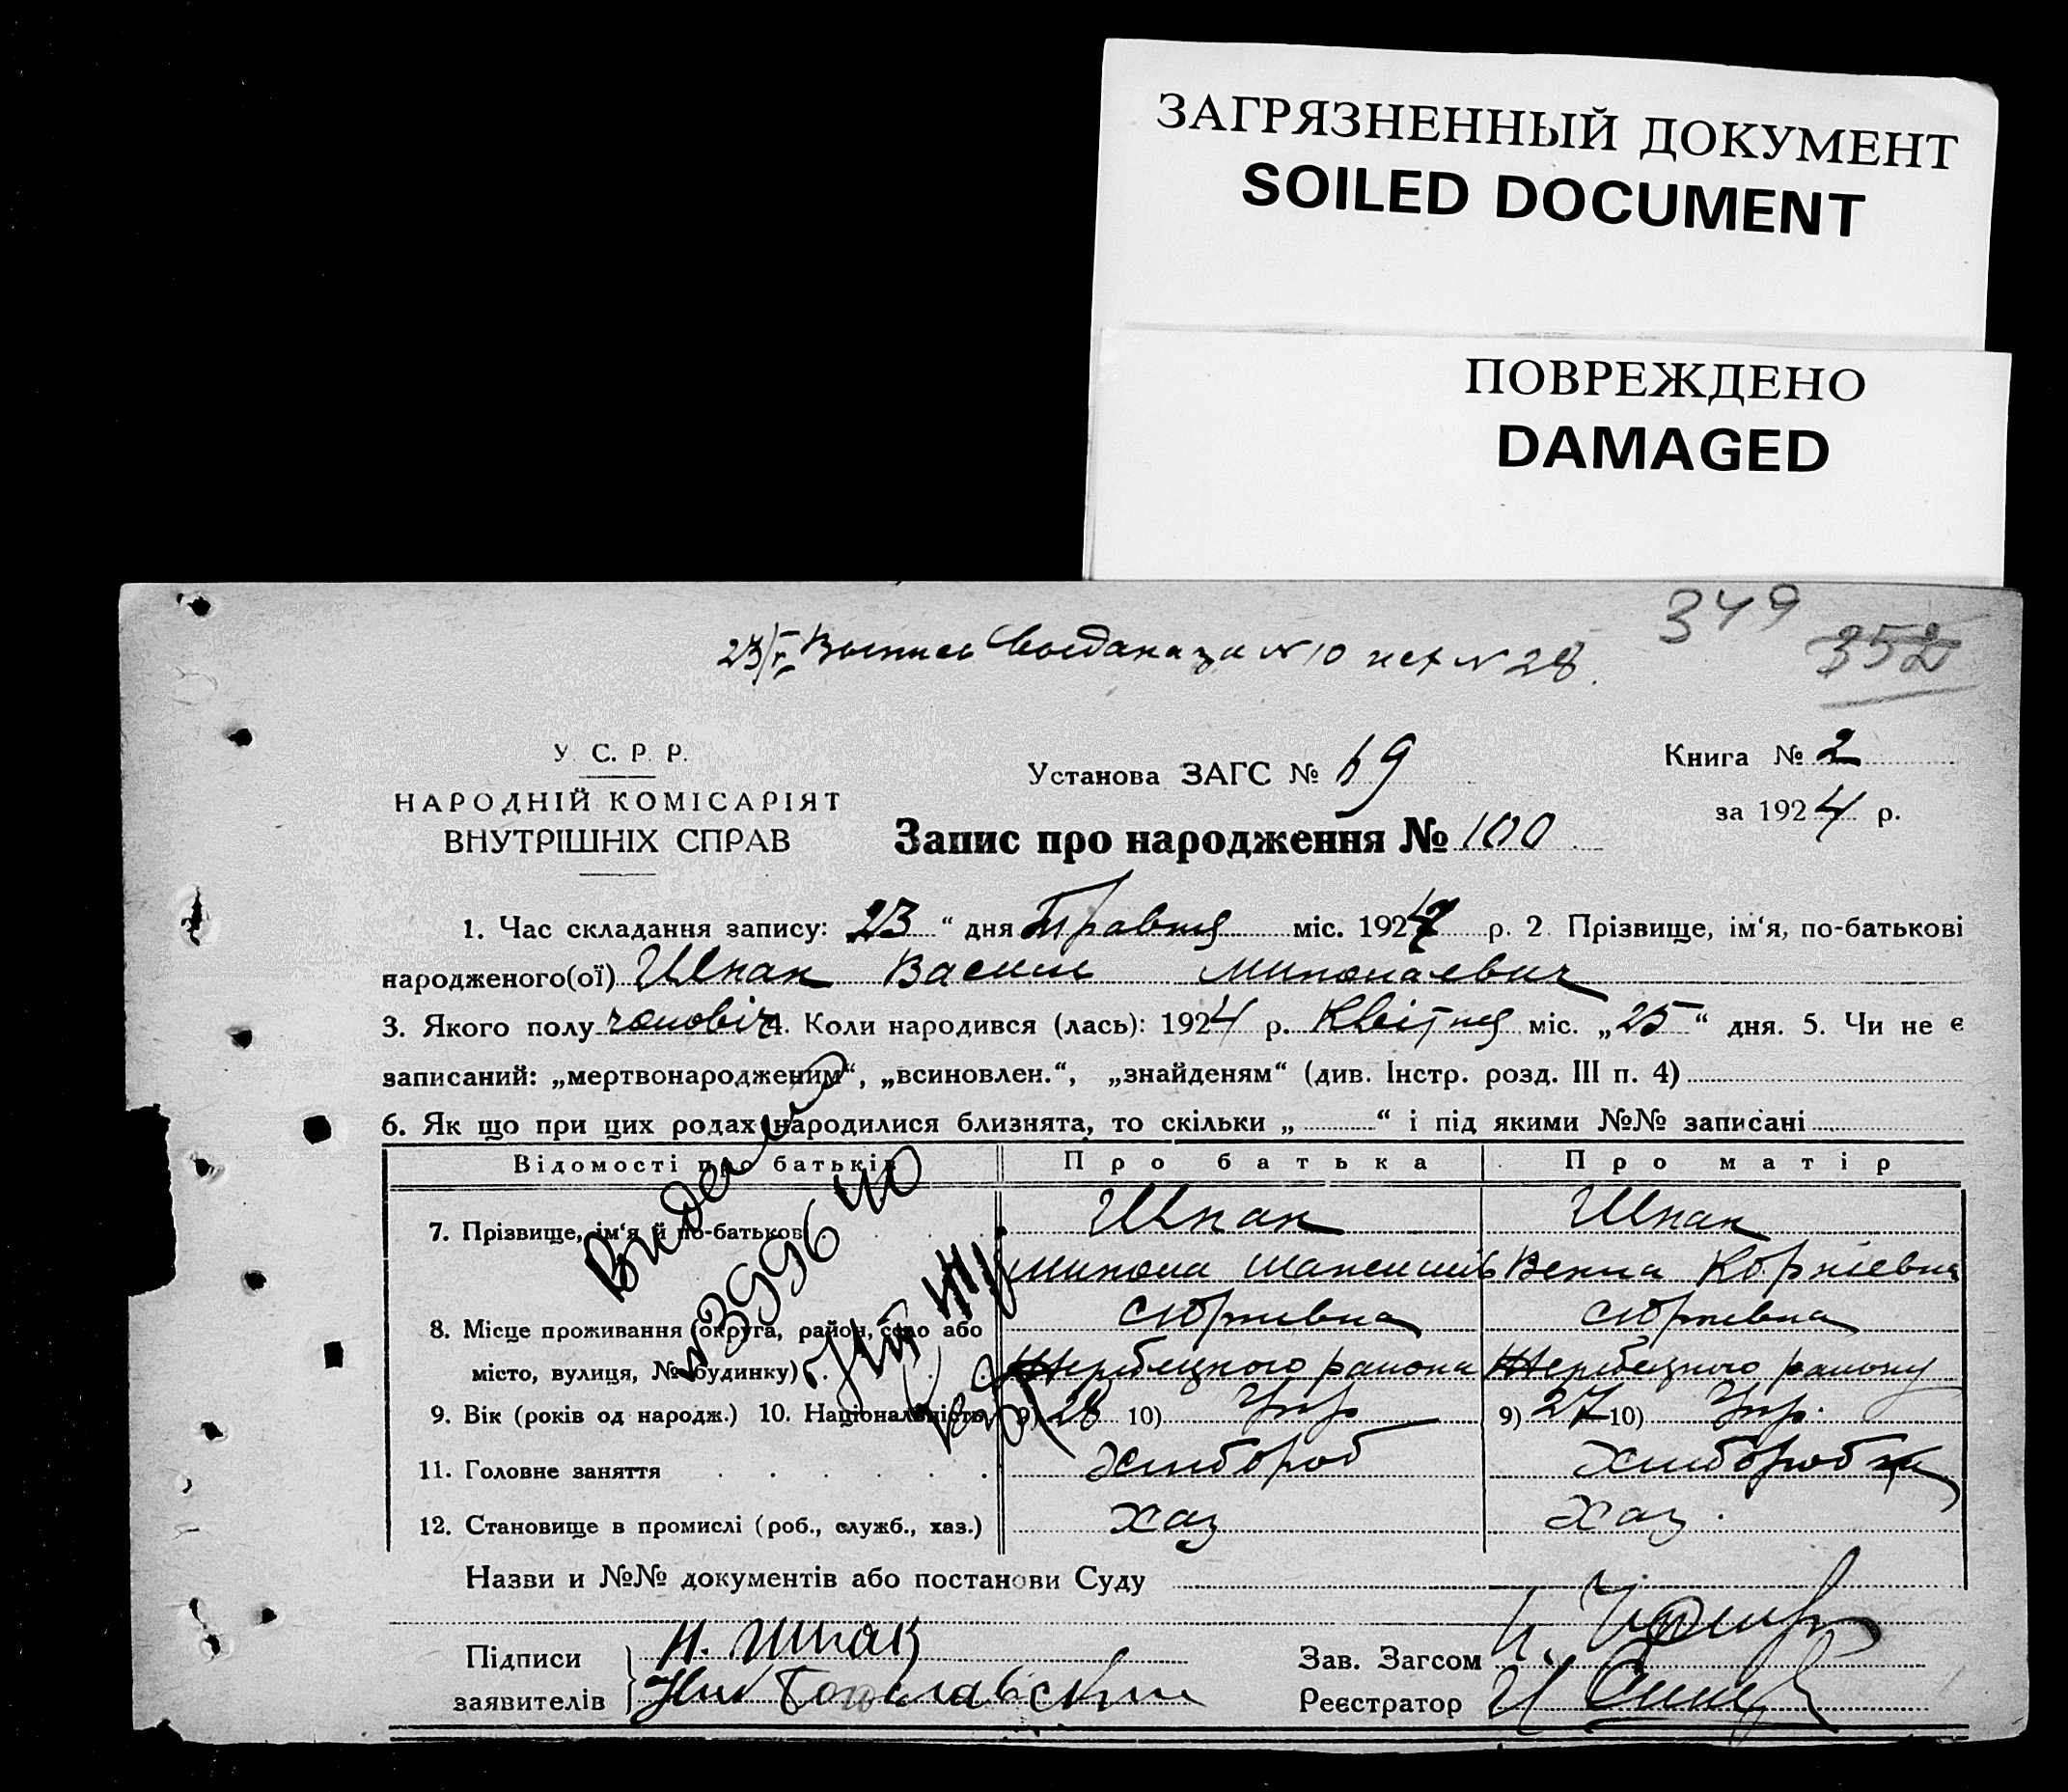 ЗАГРЯЗНЕННЫЙ ДОКУМЕНТ
SOILED DOCUMENT
ПОВРЕЖДЕНО
DAMAGED
349
352
№ 10 исх № 28
У. С. Р. Р.
НАРОДНІЙ КОМІСАРІЯТ
ВНУТРІШНІХ СПРАВ
Установа ЗАГС № 69
Книга № 2
за 1924 р.
Запис про народження № 100
1. Час складання запису: 23 “ дня Травня міс. 1924 р. 2 Прізвище, ім‘я, по-батькові
народженого(ої) Шпак Василь Миколаевич
3. Якого полу чоловіч 4. Коли народився (лась): 1924 р. Квітня міс. „25“ дня. 5. Чи не є
записаний: „мертвонародженим“, „всиновлен.“, „знайденям“ (див. Інстр. розд. III п. 4)
6. Як що при цих родах народилися близнята, то скільки „ “ і під якими №№ записані
Відомості про батьків Про батька Про матір
7. Прізвище, ім‘я й по-батькові Шпак Шпак
Микола Корніевна
8. Місце проживання (округа, район, село або
місто, вулиця, № будинку) района району
9. Вік (років од народж.) 10. Національність 9) 28 10) Укр 9) 27 10) Укр.
11. Головне заняття Хлібороб Хліборобка
12. Становище в промислі (роб., служб., хаз.) хаз хаз.
Видано
№ 399640
Назви и №№ документів або постанови Суду
Підписи Н. Шпак Зав. Загсом
заявителів Реєстратор